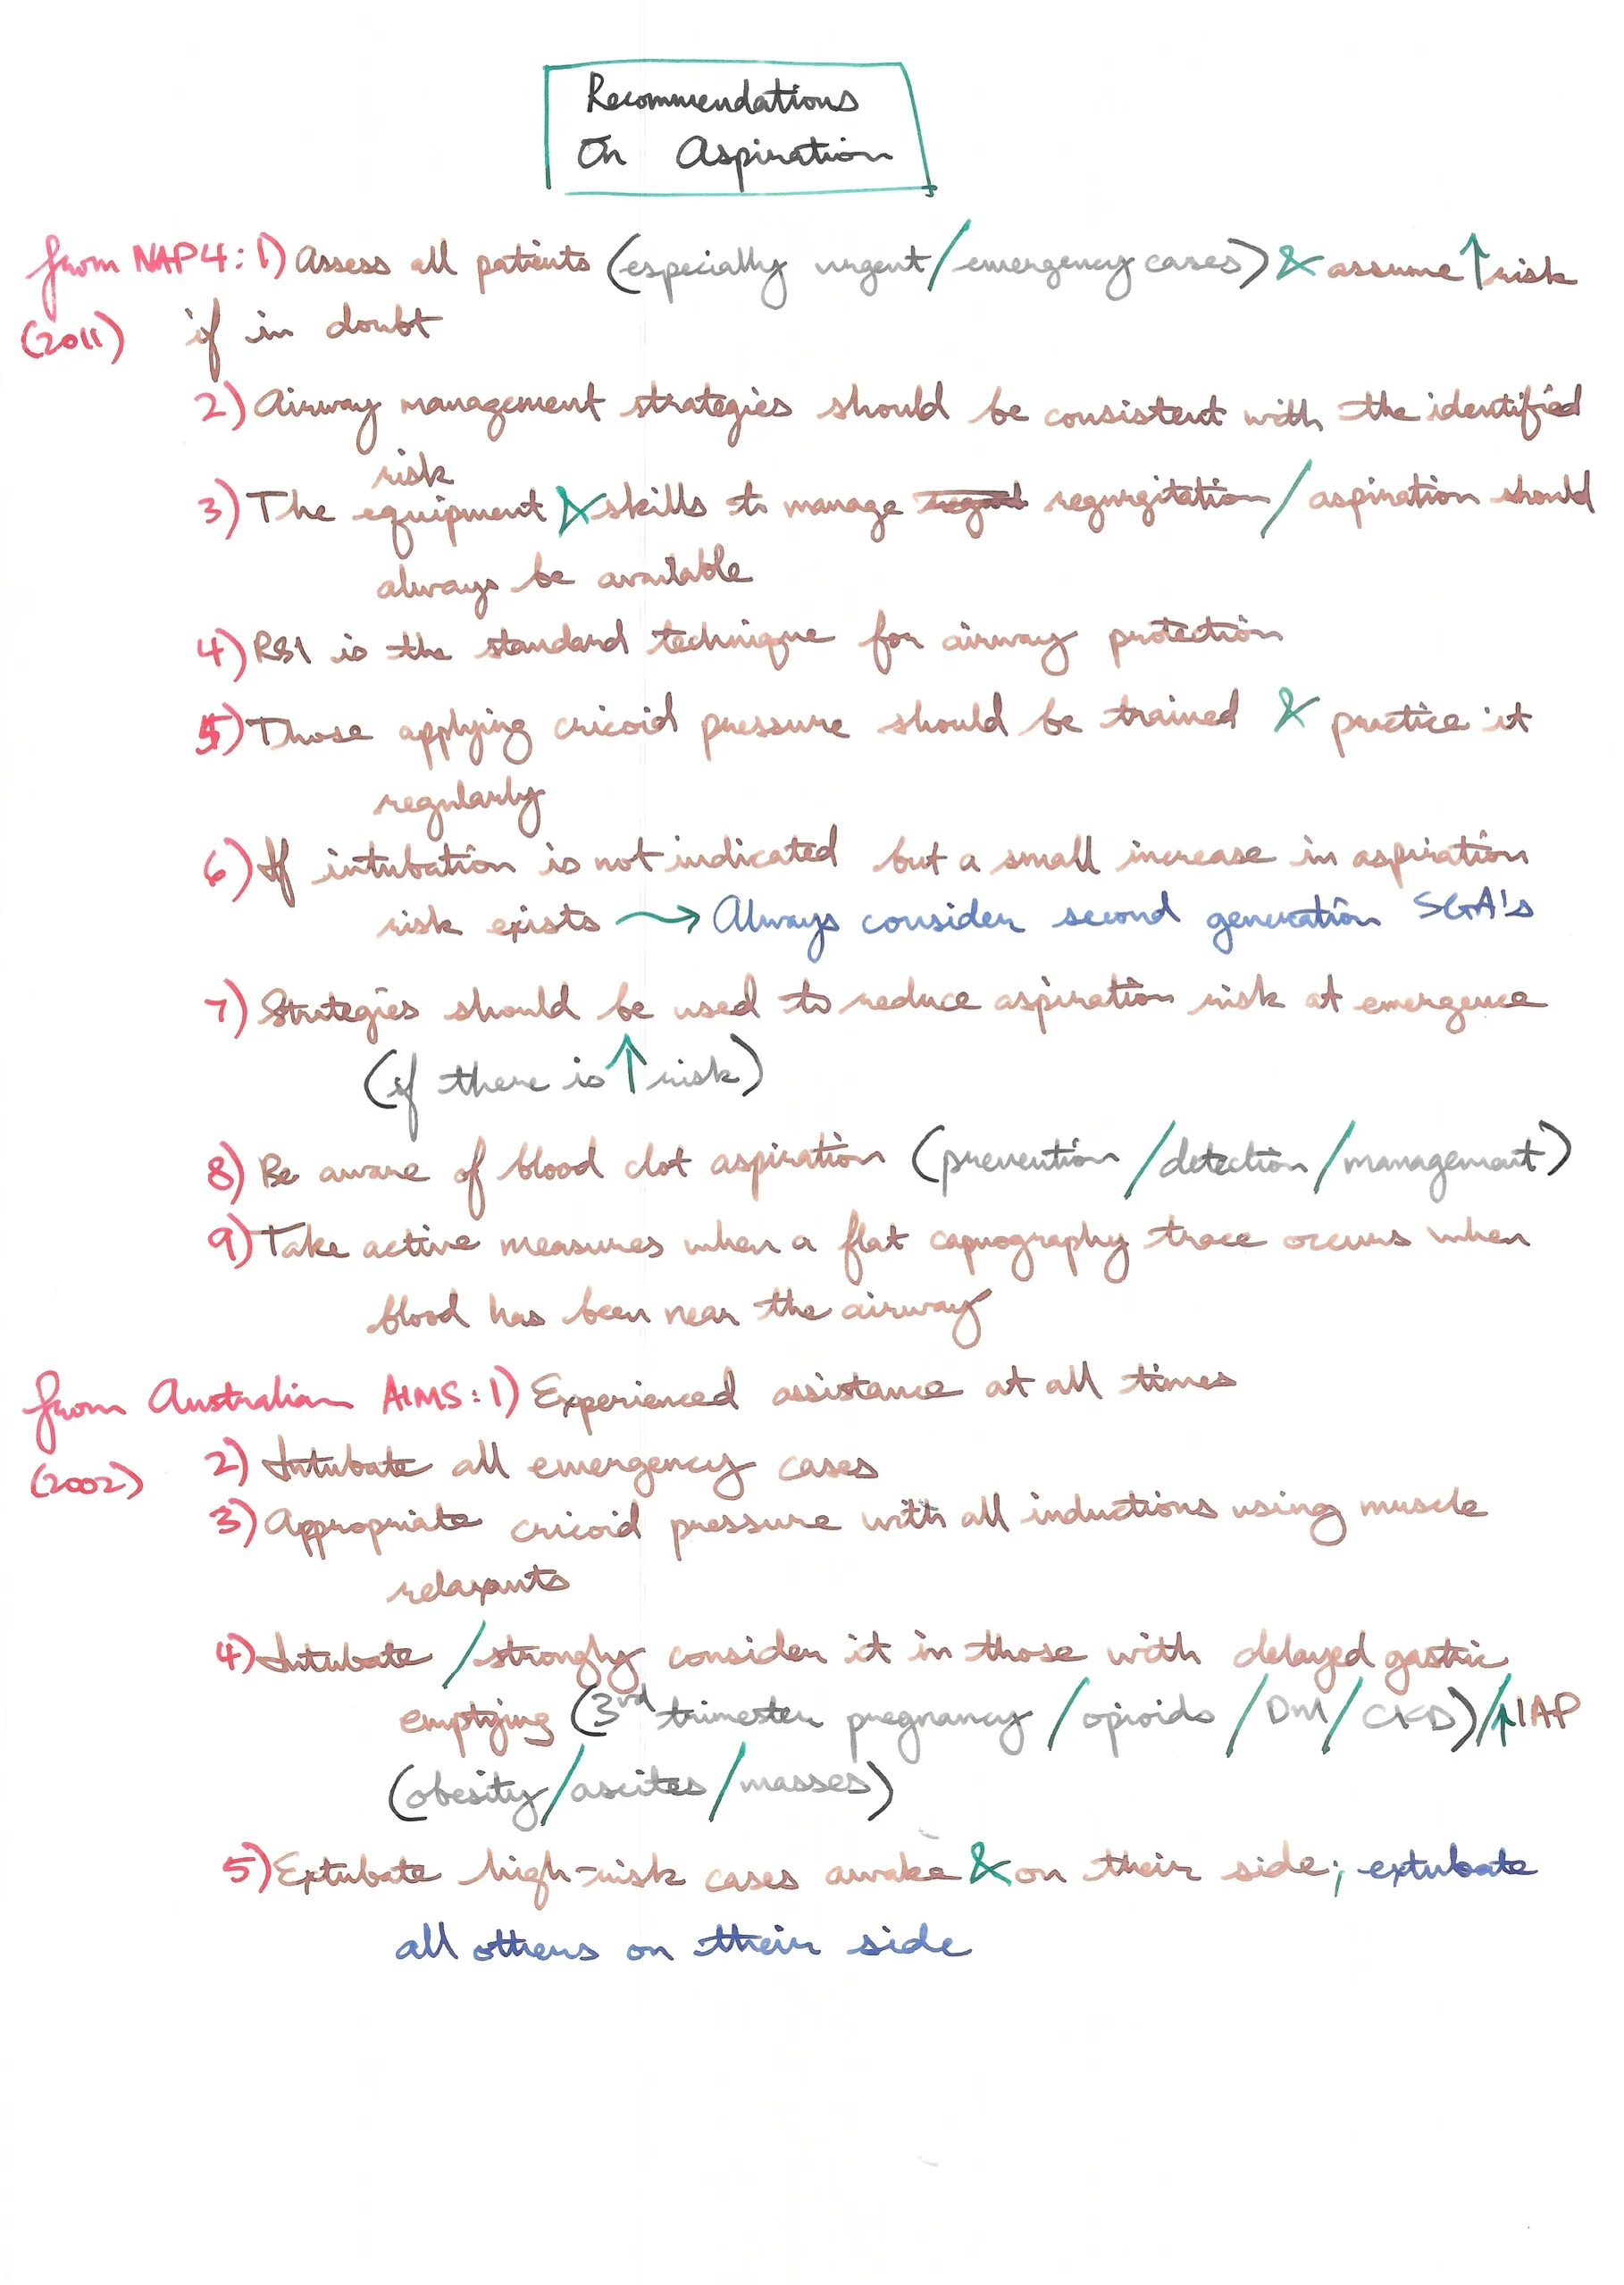 Recommendations
On Aspiration
from NAP4: 1) Assess all patients (especially urgent/emergency cases) & assume ↑ risk
(2011) if in doubt
2) Airway management strategies should be consistent with the identified
risk
3) The equipment & skills to manage regurgitation / aspiration should
always be available
4) RSI is the standard technique for airway protection
5) Those applying cricoid pressure should be trained & practice it
regularly
6) If intubation is not indicated but a small increase in aspiration
risk exists → Always consider second generation SGA's
7) Strategies should be used to reduce aspiration risk at emergence
(if there is ↑ risk)
8) Be aware of blood clot aspiration (prevention / detection / management)
9) Take active measures when a flat capnography trace occurs when
blood has been near the airway
from Australian AIMS: 1) Experienced assistance at all times
(2002) 2) Intubate all emergency cases
3) Appropriate cricoid pressure with all inductions using muscle
relaxants
4) Intubate / strongly consider it in those with delayed gastric
emptying (3rd trimester pregnancy / opioids / DM / CKD) / ↑ IAP
(obesity / ascites / masses)
5) Extubate high-risk cases awake & on their side; extubate
all others on their side